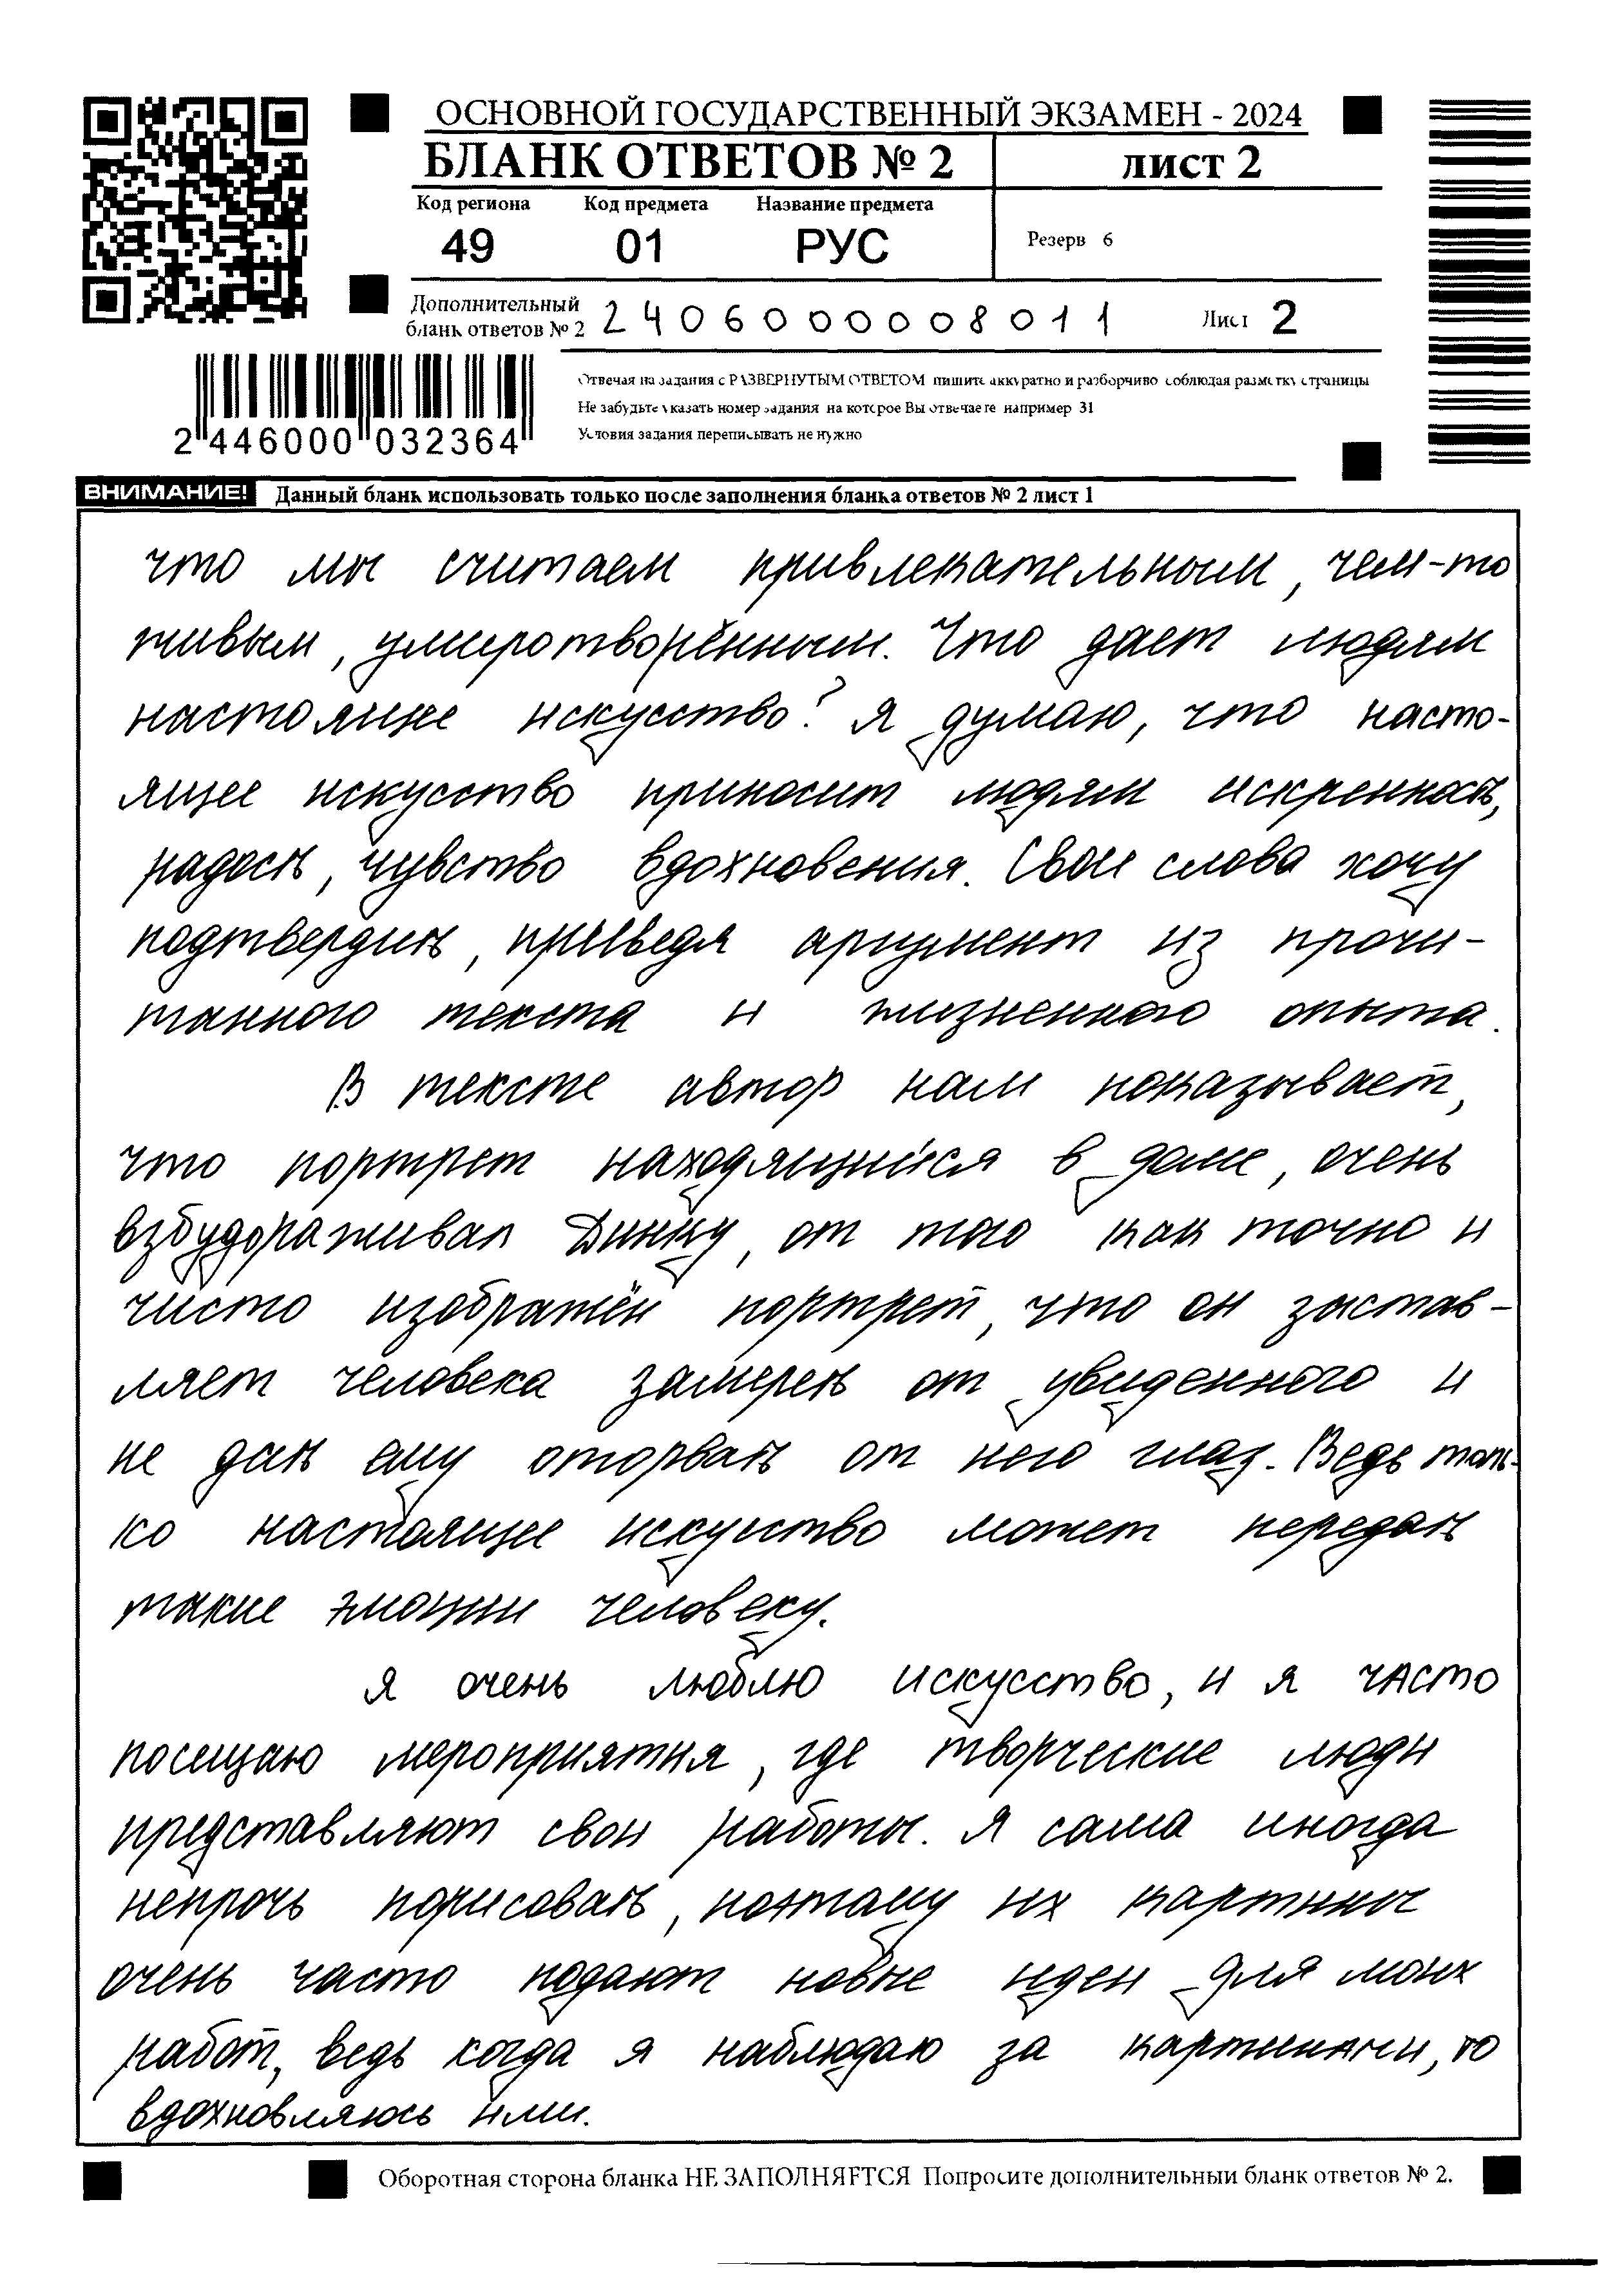 ОСНОВНОЙ ГОСУДАРСТВЕННЫЙ ЭКЗАМЕН - 2024
БЛАНК ОТВЕТОВ № 2
ЛИСТ 2
Код региона Код предмета Название предмета
49 01 РУС
Резерв 6
Дополнительный
бланк ответов № 2
2406000008011
Лист 2
Отвечая на задания с РАЗВЕРНУТЫМ ОТВЕТОМ пишите аккуратно и разборчиво соблюдая разметку страницы
Не забудьте указать номер задания на которое Вы отвечаете например 31
Условия задания переписывать не нужно
2 446000 032364
ВНИМАНИЕ! Данный бланк использовать только после заполнения бланка ответов № 2 лист 1
что мы считаем привлекательным, чем-то
живым, умиротворённым. Что дает людям
настоящие искусство? Я думаю, что насто-
ящее искусство приносит людям искренность,
радость, чувство вдохновения. Свои слова хочу
подтвердить, приведя аргумент из прочи-
танного текста и жизненного опыта.
В тексте автор нам показывает,
что портрет находящийся в доме, очень
взбудораживал Динку, от того как точно и
чисто изображён портрет, что он застав-
ляет человека замереть от увиденного и
не дать ему оторвать от него глаз. Ведь толь-
ко настоящее искусство может передать
такие эмоции человеку.
Я очень люблю искусство, и я часто
посещаю мероприятия, где творческие люди
представляют свои работы. Я сама иногда
непрочь порисовать, поэтому их картины
очень часто подают новые идеи для моих
работ, ведь когда я наблюдаю за картинами, то
вдохновляюсь ими.
Оборотная сторона бланка НЕ ЗАПОЛНЯЕТСЯ Попросите дополнительный бланк ответов № 2.